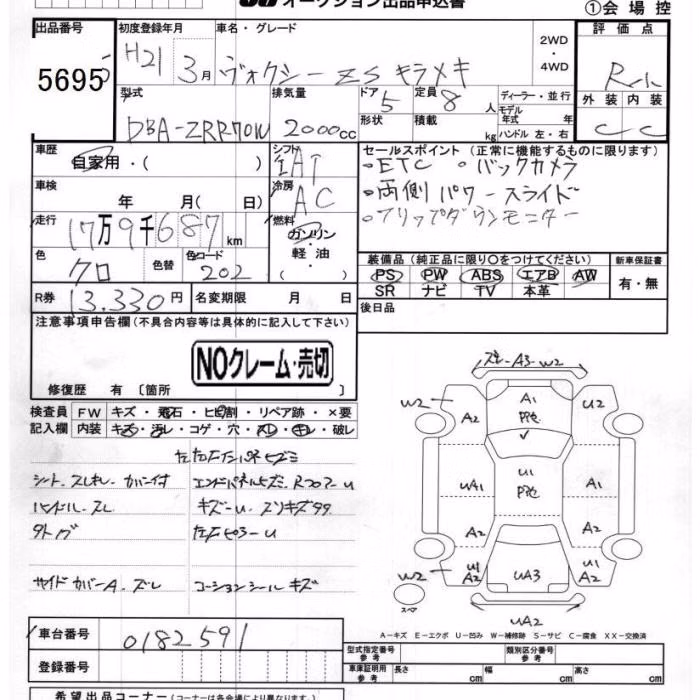 オークション出品申込書
①会場控
出品番号
5695
初度登録年月
H21 3月
車名・グレード
ヴォクシー ZS キラメキ
2WD
・
4WD
評価点
R小
型式
DBA-ZRR70W
排気量
2000cc
ドア 5
定員 8人
形状
積載 kg
ディーラー・並行
モデル年式 年
ハンドル 左・右
外装 内装
C C
車歴
自家用・( )
シフト
IAT
車検
年 月( 日)
冷房
AC
走行
17万9千687km
燃料
ガソリン
・
軽油
・( )
色
クロ
色替
色コード
202
R券
13,330円
名変期限 月 日
セールスポイント (正常に機能するものに限ります)
・ETC ・バックカメラ
・両側パワースライド
・フリップダウンモニター
装備品 (純正品に限り〇をつけてください)
PS PW ABS エアB AW
SR ナビ TV 本革
新車保証書
有・無
後日品
注意事項申告欄 (不具合内容等は具体的に記入して下さい)
NOクレーム・売切
修復歴 有 〔箇所 〕
検査員記入欄
FW キズ・飛石・ヒビ割・リペア跡・×要
内装 キズ・汚レ・コゲ・穴・スレ・キレ・破レ
シート スレキレ カバー付
ハンドル スレ
タトグ
キズ-U
左Fピラー U
サイドカバーA. ズレ
コーションシール キズ
ズレ-A3-W2
W2
A2
A1
U2
U1
UA1
A1
A2
A2
W2
U1
A2
UA3
U1
A2
スペア
UA2
A-キズ E-エクボ U-凹み W-補修跡 S-サビ C-腐食 XX-交換済
車台番号
0182591
登録番号
型式指定番号
参考
類別区分番号
参考
車庫証明用
参考
長さ cm
幅 cm
高さ cm
希望出品コーナー (コーナーは各会場により異なります)